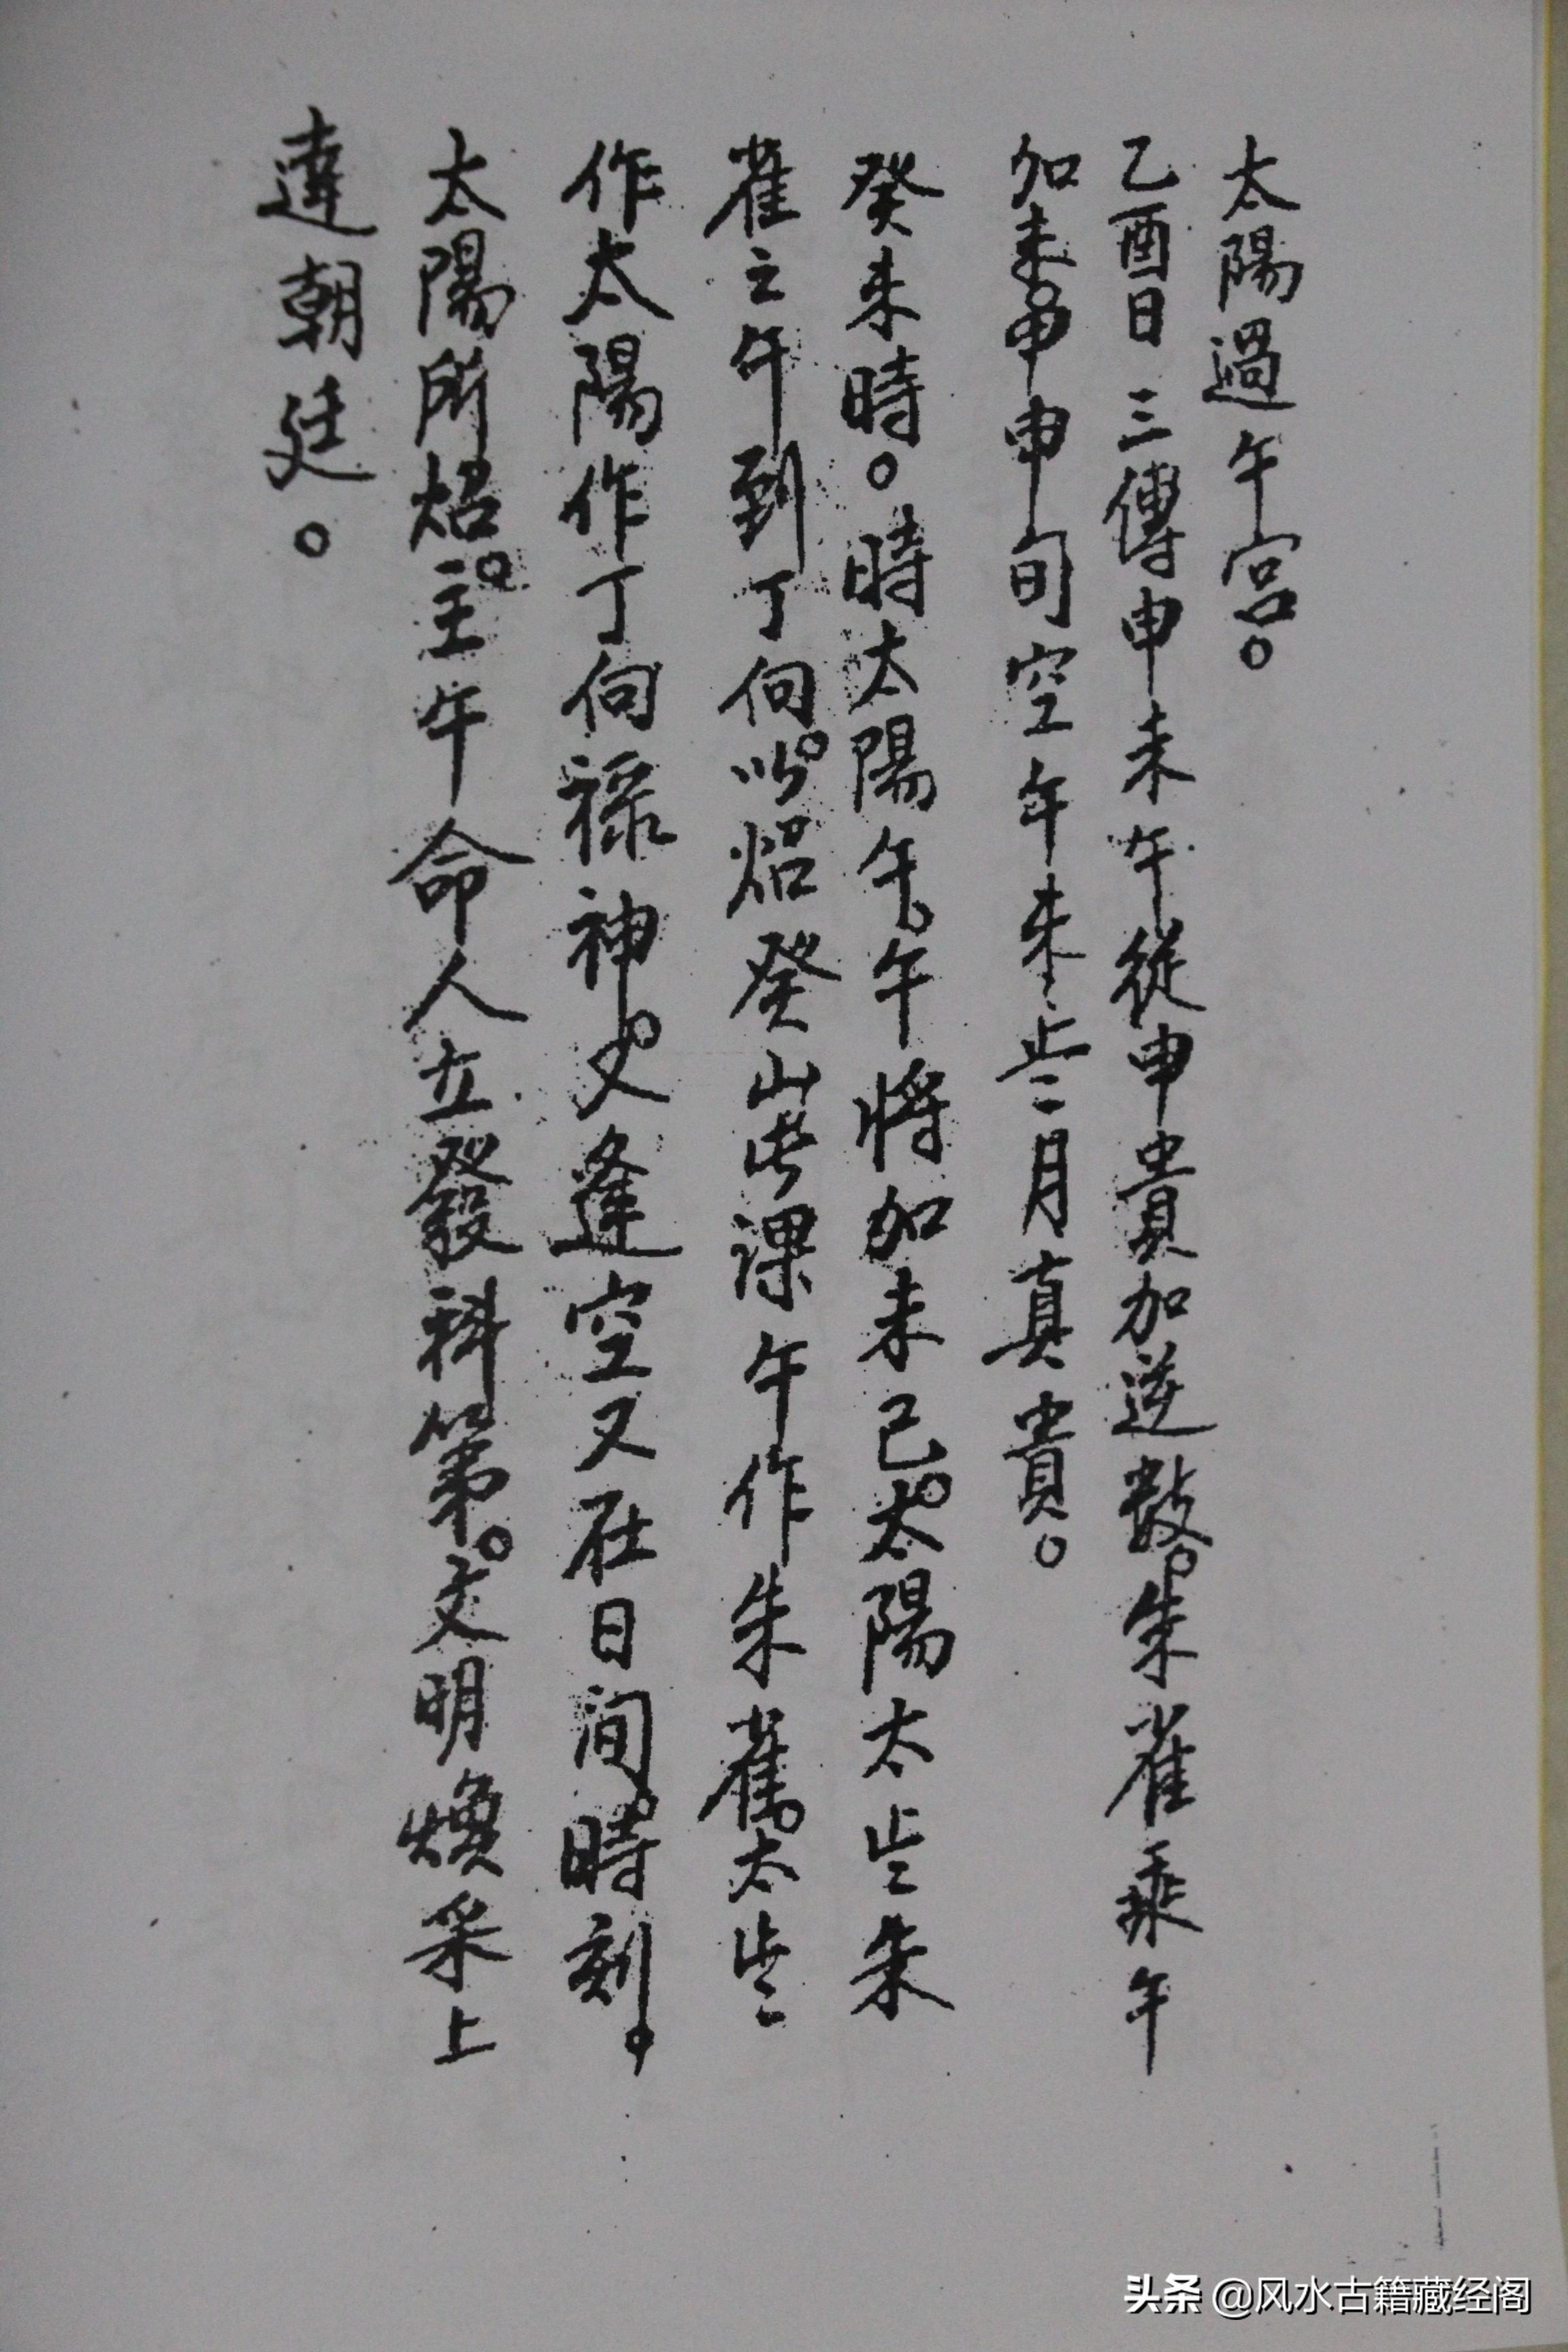 太陽過午宮。
乙酉日三傳申未午從申貴加逆數。朱雀乘午
加未。甲申旬空午未。月真貴。
癸未時。時太陽午。午將加未已。太陽太朱
雀之午到丁向。以炤癸山此課午作朱雀。太
作太陽作丁向祿神。又逢空又在日間。時刻。
太陽所炤。主午命人立發科第。文明煥采上
達朝廷。
头条 @风水古籍藏经阁